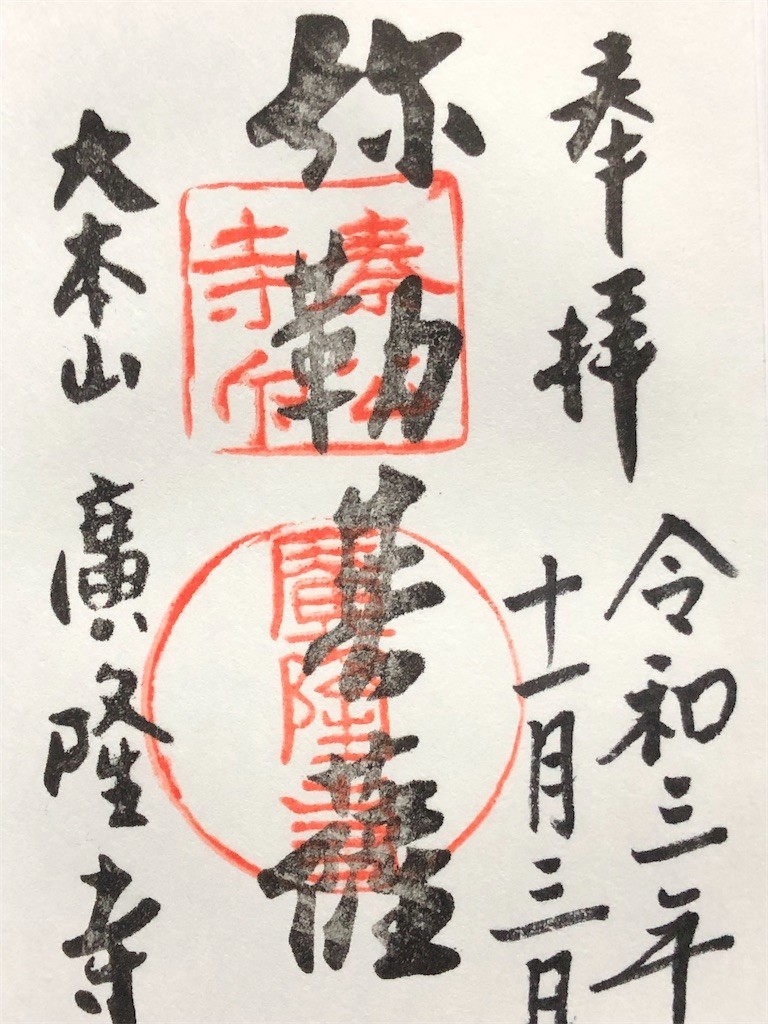 奉拝
令和三年
十一月三日
弥勒菩薩
秦公
寺印
廣隆
大本山 廣隆寺